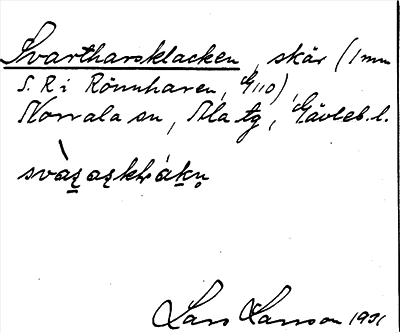 Svartharsklacken, skär (1 mm
S. R i Rönnharen, G110),
Norrala sn, Ala tg, Gävleb. l.
Lars Larsson 1931